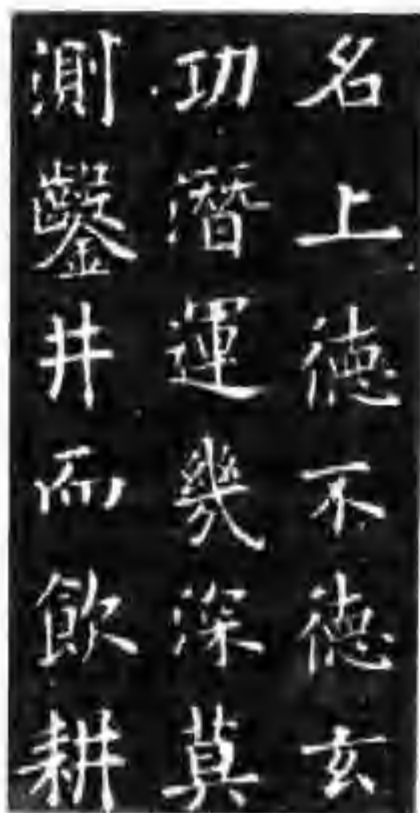 名上德不德玄
功潛運幾深莫
測鑿井而飲耕